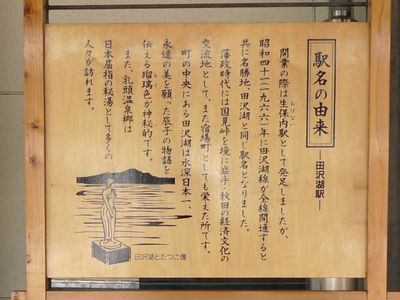 駅名の由来
―田沢湖駅―
開業の際は生保内駅として発足しましたが、
昭和四十一(一九六六)年に田沢湖線が全線開通すると
共に名勝地・田沢湖と同じ駅名となりました。
藩政時代には国見峠を境に岩手・秋田の経済文化の
交流地として、また宿場町としても栄えた所です。
町の中央にある田沢湖は水深日本一、
永遠の美を願った辰子の物語を
伝える瑠璃色が神秘的です。
また、乳頭温泉郷は
日本屈指の秘湯として多くの
人々が訪れます。
田沢湖とたつこ像